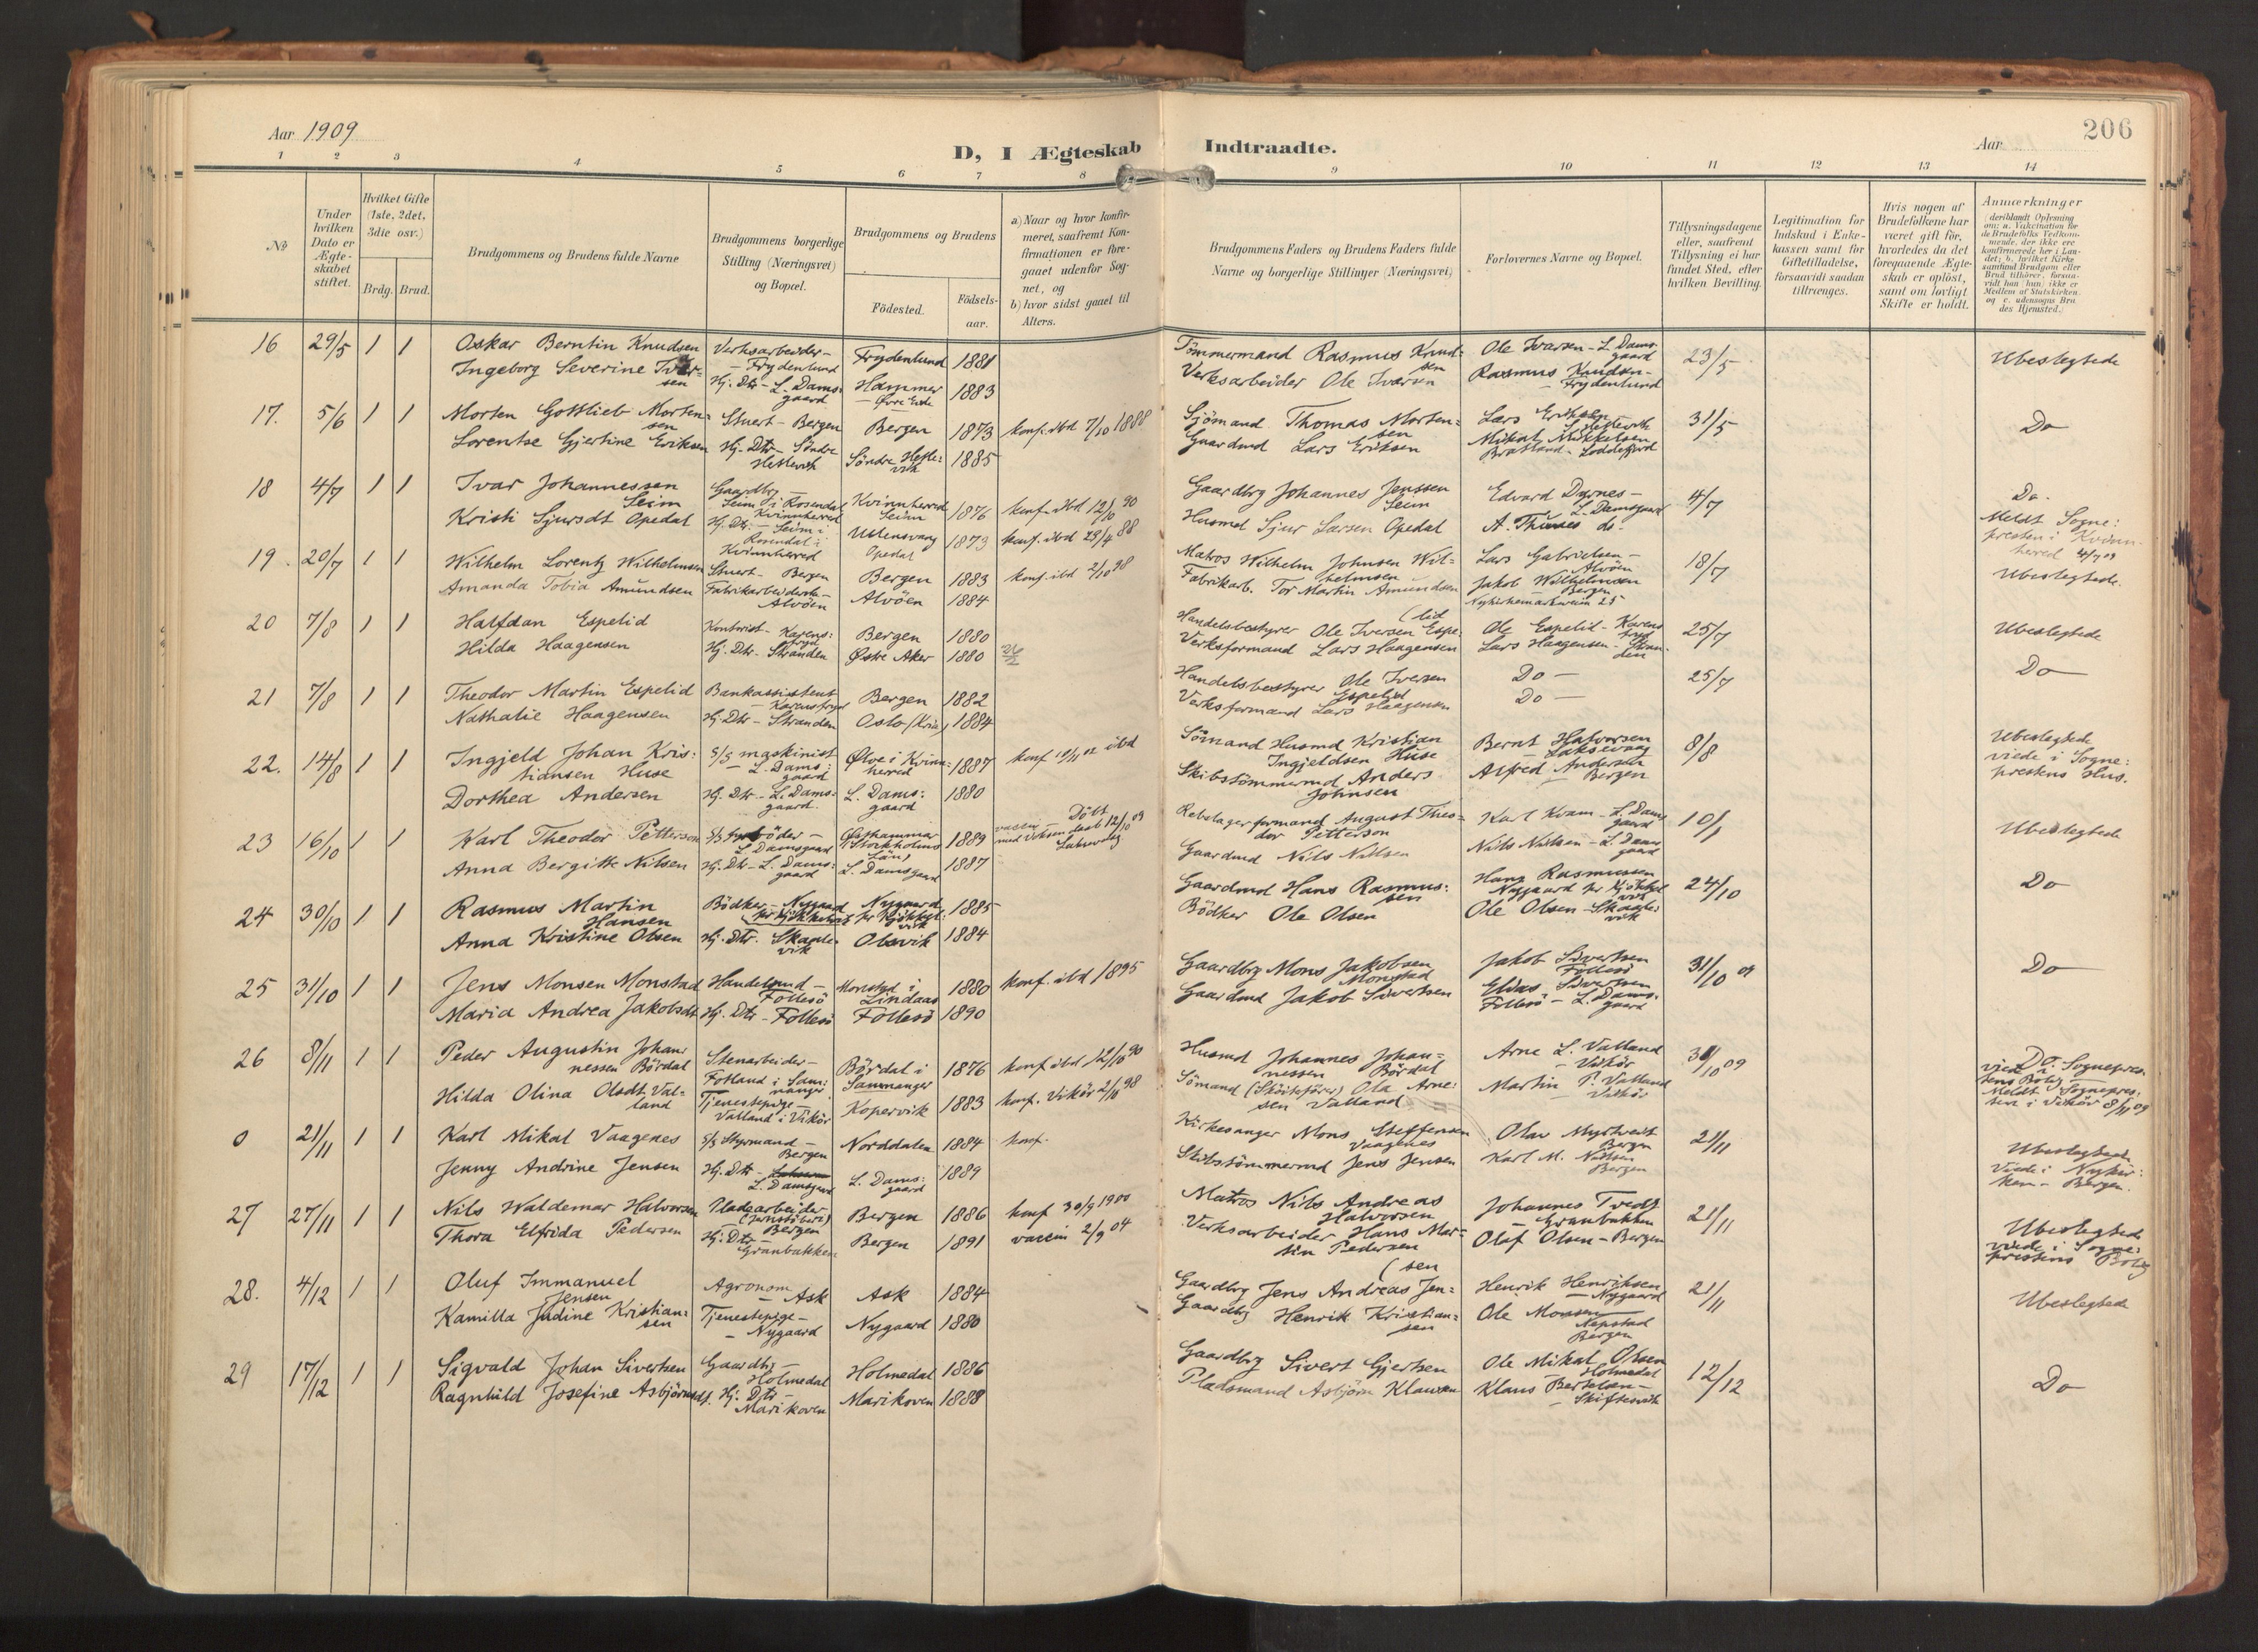 Aar 1909
D, I Ægteskab Indtraadte.
Aar
206
1 2 3 4 5 6 7 8 9 10 11 12 13 14
No
Under hvilken Dato er Ægteskabet stiftet.
Hvilket Gifte (1ste, 2det, 3die osv.)
Brdg. Brud.
Brudgommens og Brudens fulde Navne
Brudgommens borgerlige Stilling (Næringsvei) og Bopæl.
Brudgommens og Brudens
Födested.
Födselsaar.
a) Naar og hvor konfirmeret, saafremt Konfirmationen er foregaaet udenfor Sognet, og
b) hvor sidst gaaet til Alters.
Brudgommens Faders og Brudens Faders fulde Navne og borgerlige Stillinger (Næringsvei)
Forlovernes Navne og Bopæl.
Tillysningsdagene eller, saafremt Tillysning ei har fundet Sted, efter hvilken Bevilling.
Legitimation for Indskud i Enkekassen samt for Giftetilladelse, forsaavidt saadan tiltrænges.
Hvis nogen af Brudefolkene har været gift før, hvorledes da det foregaaende Ægteskab er opløst, samt om lovligt Skifte er holdt.
Anmærkninger
16 29/5 1 1 Oskar Berntin Knudsen Verksarbeider - Frydenlund Frydenlund 1881 Tømmermand Rasmus Knudsen Ole Iversen - L. Damsgaard 23/5 Ubeslegtede
Ingeborg Severine Iversen Hj. Dtr - L. Damsgaard Hammer - Øvre Eide 1883 Verksarbeider Ole Iversen Rasmus Knudsen - Frydenlund
17. 5/6 1 1 Morten Gottlieb Mortensen Stuert - Bergen Bergen 1873 konf. ibd 7/10 1888 Sjömand Thomas Mortensen Lars Eriksen 31/5 Do
Lorentse Gjertine Eriksen Hj. Dtr - Söndre Hettevik Söndre Hettevik 1885 Gaardmd Lars Eriksen Mikal Mikkelsen Bratland - Loddefjord
18 4/7 1 1 Ivar Johannessen Seim Gaardbrg - Seim i Rosendal Kvinnherred Kvinnherred Seim 1876 konf. ibd 12/10 90 Gaardbrg Johannes Jenssen Seim Edvard Dyrnes - L. Damsgaard 4/7 Do.
Kristi Sjursdt Opedal Hj. Dtr. - Seim - Rosendal i Kvinnherred Ullensvang Opedal 1873 konf. ibd 29/4 88 Husmd Sjur Larsen Opedal A. Thunes do. Meldt Sognepresten i Kvinnherred 4/7 09
19. 20/7 1 1 Wilhelm Lorentz Wilhelmsen Stuert - Bergen Bergen 1883 konf. ibd 2/10 98 Matros Wilhelm Johnsen Wilhelmsen Lars Gabrielsen - Alvöen 18/7 Ubeslegtede.
Amanda Tobia Amundsen Fabrikarbeiderske - Alvöen Alvöen 1884 Fabrikarb. Tor Martin Amundsen Jakob Wilhelmsen Bergen
20 7/8 1 1 Halfdan Espelid Kontorist - Karensfryd Bergen 1880 Handelsbestyrer Ole Iversen Espelid Ole Espelid - Karensfryd 25/7 Ubeslegtede
Hilda Haagensen Hj. Dtr - Stranden Østre Aker 1880 Verksformand Lars Haagensen Lars Haagensen - Stranden
21 7/8 1 1 Theodor Martin Espelid Bankassistent - Karensfryd Bergen 1882 Handelsbestyrer Ole Iversen Espelid Do - 25/7 Do
Nathalie Haagensen Hj. Dtr - Stranden Oslo (Kria) 1884 Verksformand Lars Haagensen Do -
22. 14/8 1 1 Ingjeld Johan Kristiansen Huse S/S maskinist - L. Damsgaard Ølve i Kvinnherred 1887 konf ibd Sömand Husmd Kristian Ingjeldsen Huse Bernt Halvorsen Laksevaag 8/8 Ubeslegtede viede i Sogneprestens Hus.
Dorthea Andersen Hj. Dtr - L. Damsgaard. L. Damsgaard 1880 Skibstömmermd Anders Johnsen Alfred Andersen Bergen
23 16/10 1 1 Karl Theodor Petterson S/S fyrböder - L. Damsgaard Østhammar (Stockholms Län) 1889 Döbt Rebslagerformand August Theodor Petterson Karl Kvam - L. Damsgaard 10/1 Ubeslegtede
Anna Bergitte Nilsen Hj. Dtr - L. Damsgaard L. Damsgaard 1887 Gaardmd Nils Nilsen Nils Nilsen - L. Damsgaard
24 30/10 1 1 Rasmus Martin Hansen Bödker - Nygaard Nygaard 1885 Gaardmd Hans Rasmussen Hans Rasmussen Nygaard 24/10 Do
Anna Kristine Olsen Hj. Dtr. Skaalevik Olsvik 1884 Bödker Ole Olsen Ole Olsen - Skaalevik
25 31/10 1 1 Jens Monsen Monstad Handelsmd - Follesö Monstad i Lindaas 1880 konf. ibd 1895 Gaardbrg Mons Jakobsen Monstad Jakob Sivertsen Follesö 31/10 09 Do
Maria Andrea Jakobsdt Hj. Dtr - Follesö Follesö 1890 Gaardmd Jakob Sivertsen Elias Sivertsen Follesö - L. Damsgaard
26 8/11 1 1 Peder Augustin Johannessen Bördal Stenarbeider - Fotland i Samnanger Bördal i Samnanger 1876 konf ibd 12/10 90 Husmd Johannes Johannessen Bördal Arne L. Valland - Vikör 31/10 09 Do.
Hilda Olina Olsdt. Valland Tjenestepige - Valland i Vikör Kopervik 1883 konf. Vikör 2/10 98 Sömand (Sköitefører) Ola Arnesen Valland Martin P. Valland - Vikör Meldt Sognepresten i Vikör 8/11 09
0 21/11 1 1 Karl Mikal Vaagenes S/S Styrmand - Bergen Norddalen 1884 konf. Kirkesanger Mons Steffensen Vaagenes Olav Myrtveit Bergen 21/11 Ubeslegtede
Jenny Andrine Jensen Hj. Dtr - L. Damsgaard L. Damsgaard 1889 Skibstömmermd Jens Jensen Karl M. Nilsen Bergen Viede i Nykirken - Bergen.
27 27/11 1 1 Nils Waldemar Halvorsen Pladearbeider Bergen Bergen 1886 konf 30/9 1900 Matros Nils Andreas Halvorsen Johannes Tvedt - Granbakken 21/11 Ubeslegtede
Thora Elfrida Pedersen Hj. Dtr - Granbakken Bergen 1891 vaccin 2/9 04 Verksarbeider Hans Martin Pedersen Olaf Olsen - Bergen viede i Sogneprestens Bolig
28. 4/12 1 1 Oluf Immanuel Jensen Agronom - Ask Ask 1884 Gaardbrg Jens Andreas Jensen Henrik Henriksen - Nygaard 21/11 Ubeslegtede
Kamilla Jadine Kristiansen Tjenestepige - Nygaard Nygaard 1880 Gaardbrg Henrik Kristiansen Ole Monsen Bergen
29 17/12 1 1 Sigvald Johan Sivertsen Gaardbr - Holmedal Holmedal 1886 Gaardbrg Sivert Gjertsen Ole Mikal Olsen Holmedal 12/12 Do
Ragnhild Josefine Asbjörnsdt. Hj. Dtr - Marikoven Marikoven 1888 Pladsmand Asbjörn Klausen Klaus Bertelsen - Skiftesvik